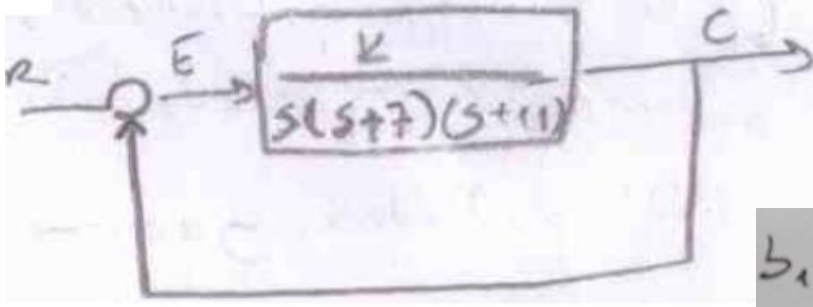 R
E
K
C
s(s+7)(s+11)
b.